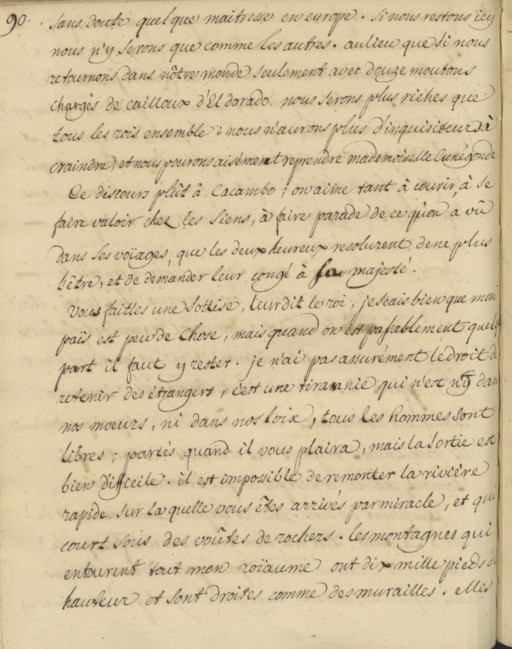 90. sans doute quelque maitresse en europe. si nous restons icy
nous n'y serons que comme les autres. aulieu que si nous
retournons dans nôtre monde seulement avec douze moutons
chargés de cailloux d'El dorado nous serons plus riches que
tous les rois ensemble; nous n'aurons plus d'inquisiteur à
craindre, et nous pourons aisément reprendre mademoiselle Cunégonde
Ce discours plût à Cacambo; on aime tant à courir, à se
faire valoir chez les siens, à faire parade de ce qu'on a vû
dans ses voiages, que les deux heureux resolurent de ne plus
l'être, et de demander leur congé à sa majesté.
Vous faittes une sottise, leur dit le roi; je scais bien que mon
païs est peu de chose, mais quand on est passablement quelque
part il faut y rester. je n'ai pas assurement le droit de
retenir des étrangers, c'est une tirannie qui n'est ny dans
nos mœurs, ni dans nos loix; tous les hommes sont
libres; partés quand il vous plaira, mais la sortie est
bien difficile. il est impossible de remonter la rivière
rapide sur laquelle vous êtes arrivés par miracle, et qui
court sous des voûtes de rochers. les montagnes qui
entourent tout mon roïaume ont dix mille pieds de
hauteur et sont droites comme des murailles. elles